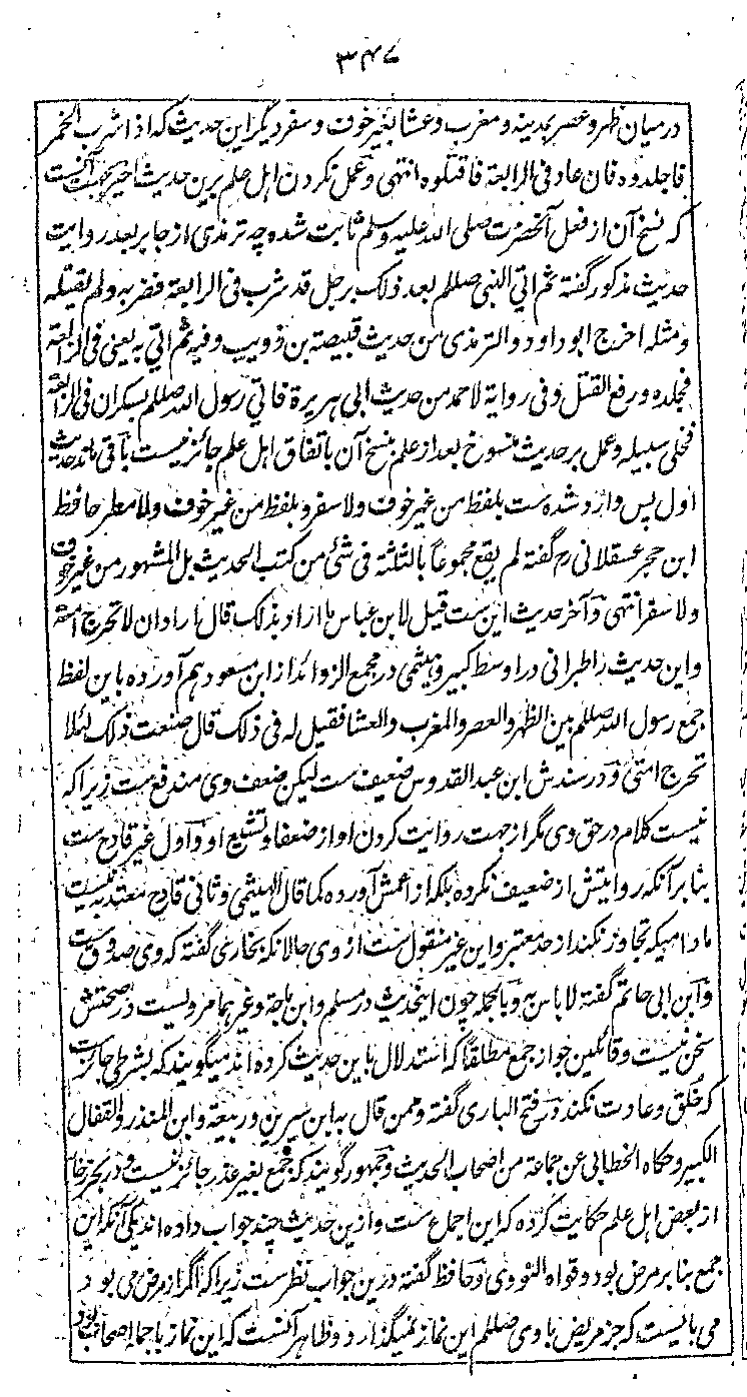 ۳۴۷
درمیان ظهر و عصر بمدینه و مغرب و عشا بغیر خوف و سفر دیگر این حدیث که اذا شرب الخمر
فاجلدوه فان عاد فی الرابعة فاقتلوه انتهی و عمل نکردن اهل علم برین حدیث اخیر بجهت آنست
که نسخ آن از فعل آنحضرت صلی الله علیه وسلم ثابت شده چه ترمذی از جابر بعد روایت
حدیث مذکور گفته ثم اتی النبی صللم بعد ذلک برجل قد شرب فی الرابعة فضربه ولم یقتله
ومثله اخرج ابوداود والترمذی من حدیث قبیصة بن ذویب وفیه ثم اتی به یعنی فی الرابعة
فجلده و رفع القتل وفی روایة لاحمد من حدیث ابی هریرة فاتی رسول الله صللم بسکران فی الرابعة
فخلی سبیله و عمل بر حدیث منسوخ بعد از علم بنسخ آن باتفاق اهل علم جائز نیست باقی ماند حدیث
اول پس وارد شده ست بلفظ من غیر خوف ولا سفر و بلفظ من غیر خوف ولا مطر حافظ
ابن حجر عسقلانی رح گفته لم یقع مجموعاً بالثلثة فی شئ من کتب الحدیث بل المشهور من غیر خوف
ولا سفر انتهی و آخر حدیث این ست قیل لابن عباس ما اراد بذلک قال اراد ان لا تحرج امته
و این حدیث را طبرانی در اوسط کبیر و هیثمی در مجمع الزوائد از ابن مسعود هم آورده باین لفظ
جمع رسول الله صللم بین الظهر والعصر والمغرب والعشا فقیل له فی ذلک قال صنعت ذلک لئلا
تحرج امتی و در سندش ابن عبد القدوس ضعیف ست لیکن ضعف وی مندفع ست زیرا که
نیست کلام در حق وی مگر از جهت روایت کردن او از ضعفا و تشیع او و اول غیر قادح ست
بنابر آنکه روایتش از ضعیف نکرده بلکه از اعمش آورده کما قال الهیثمی و ثانی قادح معتد به نیست
مادامیکه تجاوز نکند از حد معتبر و این غیر منقول ست از وی حالانکه بخاری گفته که وی صدوق ست
و ابن ابی حاتم گفته لا باس به و بالجمله چون اینحدیث در مسلم و ابن ماجة و غیرهما مرویست در صحتش
سخن نیست و قائلین جواز جمع مطلقاً که استدلال باین حدیث کرده اند میگویند که بشرطی جائز ست
که خلق و عادت نکند در فتح الباری گفته وممن قال به ابن سیرین وربیعة وابن المنذر والقفال
الکبیر وحکاه الخطابی عن جماعة من اصحاب الحدیث و جمهور گویند که جمع بغیر عذر جائز نیست و در بحر زخار
از بعض اهل علم حکایت کرده که این اجماع ست و ازین حدیث چند جواب داده اند یکی آنکه این
جمع بنابر مرض بود و قواه النووی و حافظ گفته درین جواب نظر ست زیرا که اگر از مرض می بود
می بایست که جز مریض با وی صللم این نماز نمیگذارد و ظاهر آنست که این نماز باجماع اصحاب بود